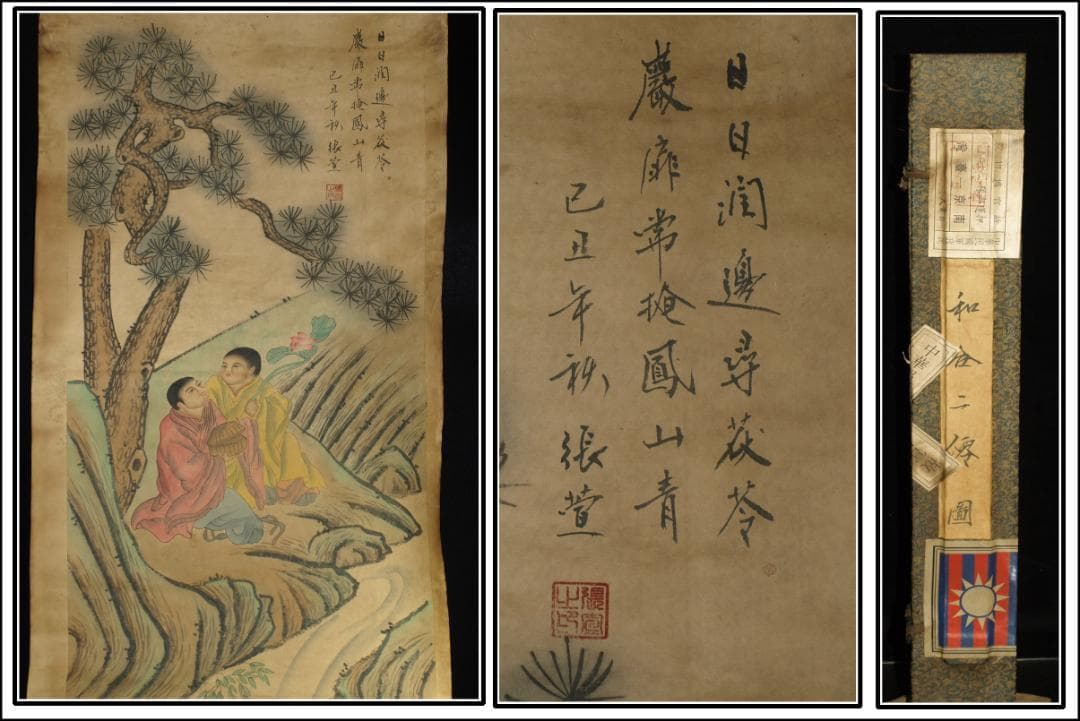 日日润邊尋茯苓
巖扉常掩鳳山青
己丑年秋 張萱
日日润邊尋茯苓
巖扉常掩鳳山青
己丑年秋 張萱
張萱之印
南京
和合二僊圖
中華